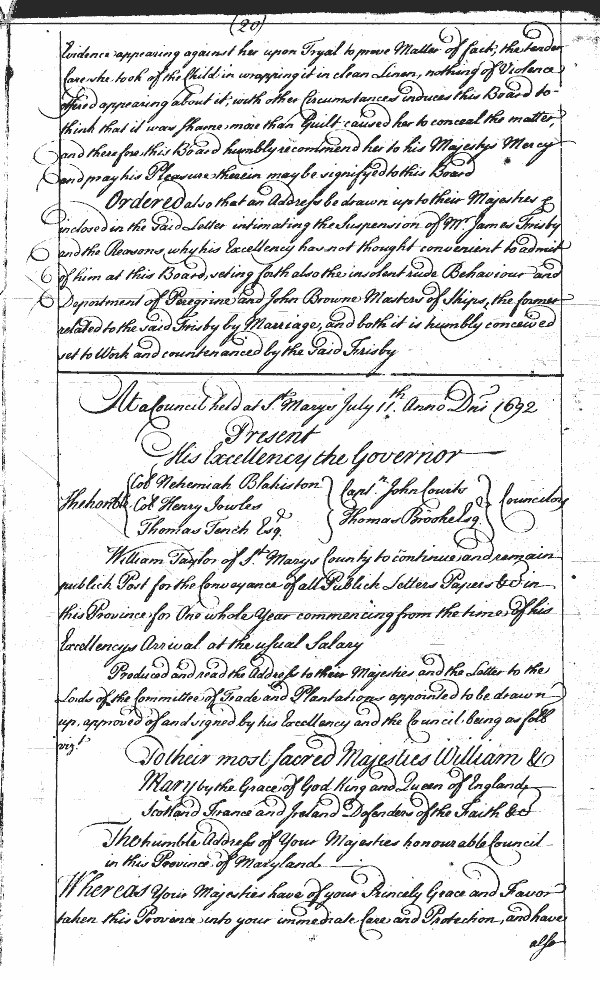 (20)
Evidence appearing against her upon Tryal to prove Matter of fact; the tender
Care she took of the Child in wrapping it in clean Linen, nothing of Violence
offered appearing about it, with other Circumstances induces this Board to
think that it was shame more than Guilt caused her to conceal the matter,
and therefore this Board humbly recommend her to his Majestys Mercy
and pray his Pleasure therein may be signifyed to this Board
Ordered also that an Address be drawn up to their Majesties &
inclosed in the said Letter intimating the Suspension of Mr James Frisby
and the Reasons why his Excellency has not thought convenient to admit
of him at this Board, seting forth also the insolent rude Behaviour and
Deportment of Peregrine and John Browne Masters of Ships, the former
related to the said Frisby by Marriage, and both it is humbly conceived
set to Work and countenanced by the said Frisby
At a Council held at St Marys July 11th Anno Dni 1692
Present
His Excellency the Governor
The honble { Col Nehemiah Blakiston } Captn John Courts } Councilors
Col Henry Jowles
Thomas Tench Esqr. } Thomas Brooke Esqr.
William Taylor of St Marys County to continue and remain
publick Post for the Conveyance of all Publick Letters Papers &c in
this Province for One whole Year commencing from the time of his
Excellencys Arrival at the usual Salary
Produced and read the Address to their Majesties and the Letter to the
Lords of the Committee of Trade and Plantations appointed to be drawn
up, approved of and signed by his Excellency and the Council being as foll
vizt
To their most sacred Majesties William &
Mary by the Grace of God King and Queen of England
Scotland France and Ireland Defenders of the Faith &c
The humble Address of Your Majesties honourable Council
in this Province of Maryland
Whereas Your Majesties have of your Princely Grace and Favor
taken this Provence into your immediate Care and Protection, and have
also